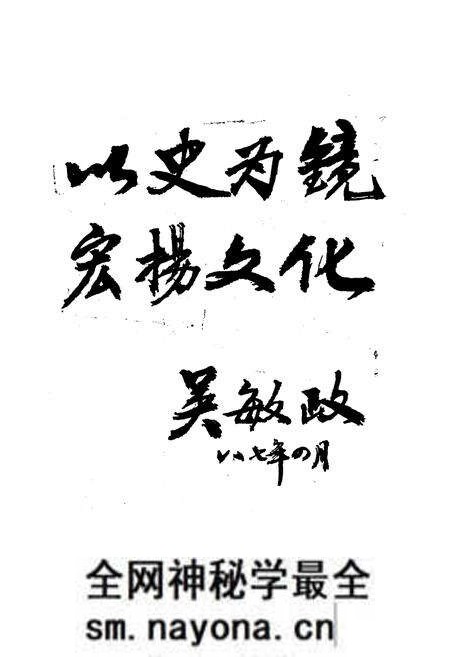 以史为镜
宏揚文化
吴敏政
八七年四月
全网神秘学最全
sm.nayona.cn